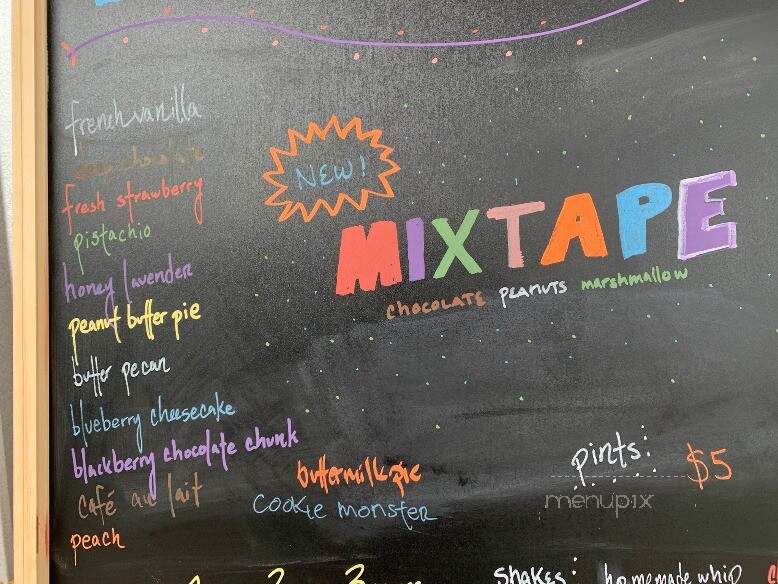 french vanilla
chocolate
fresh strawberry
pistachio
honey lavender
peanut butter pie
butter pecan
blueberry cheesecake
blackberry chocolate chunk
café au lait
peach
buttermilk pie
cookie monster
NEW!
MIXTAPE
CHOCOLATE PEANUTS marshmallow
pints: $5
menupix
shakes: homemade whip